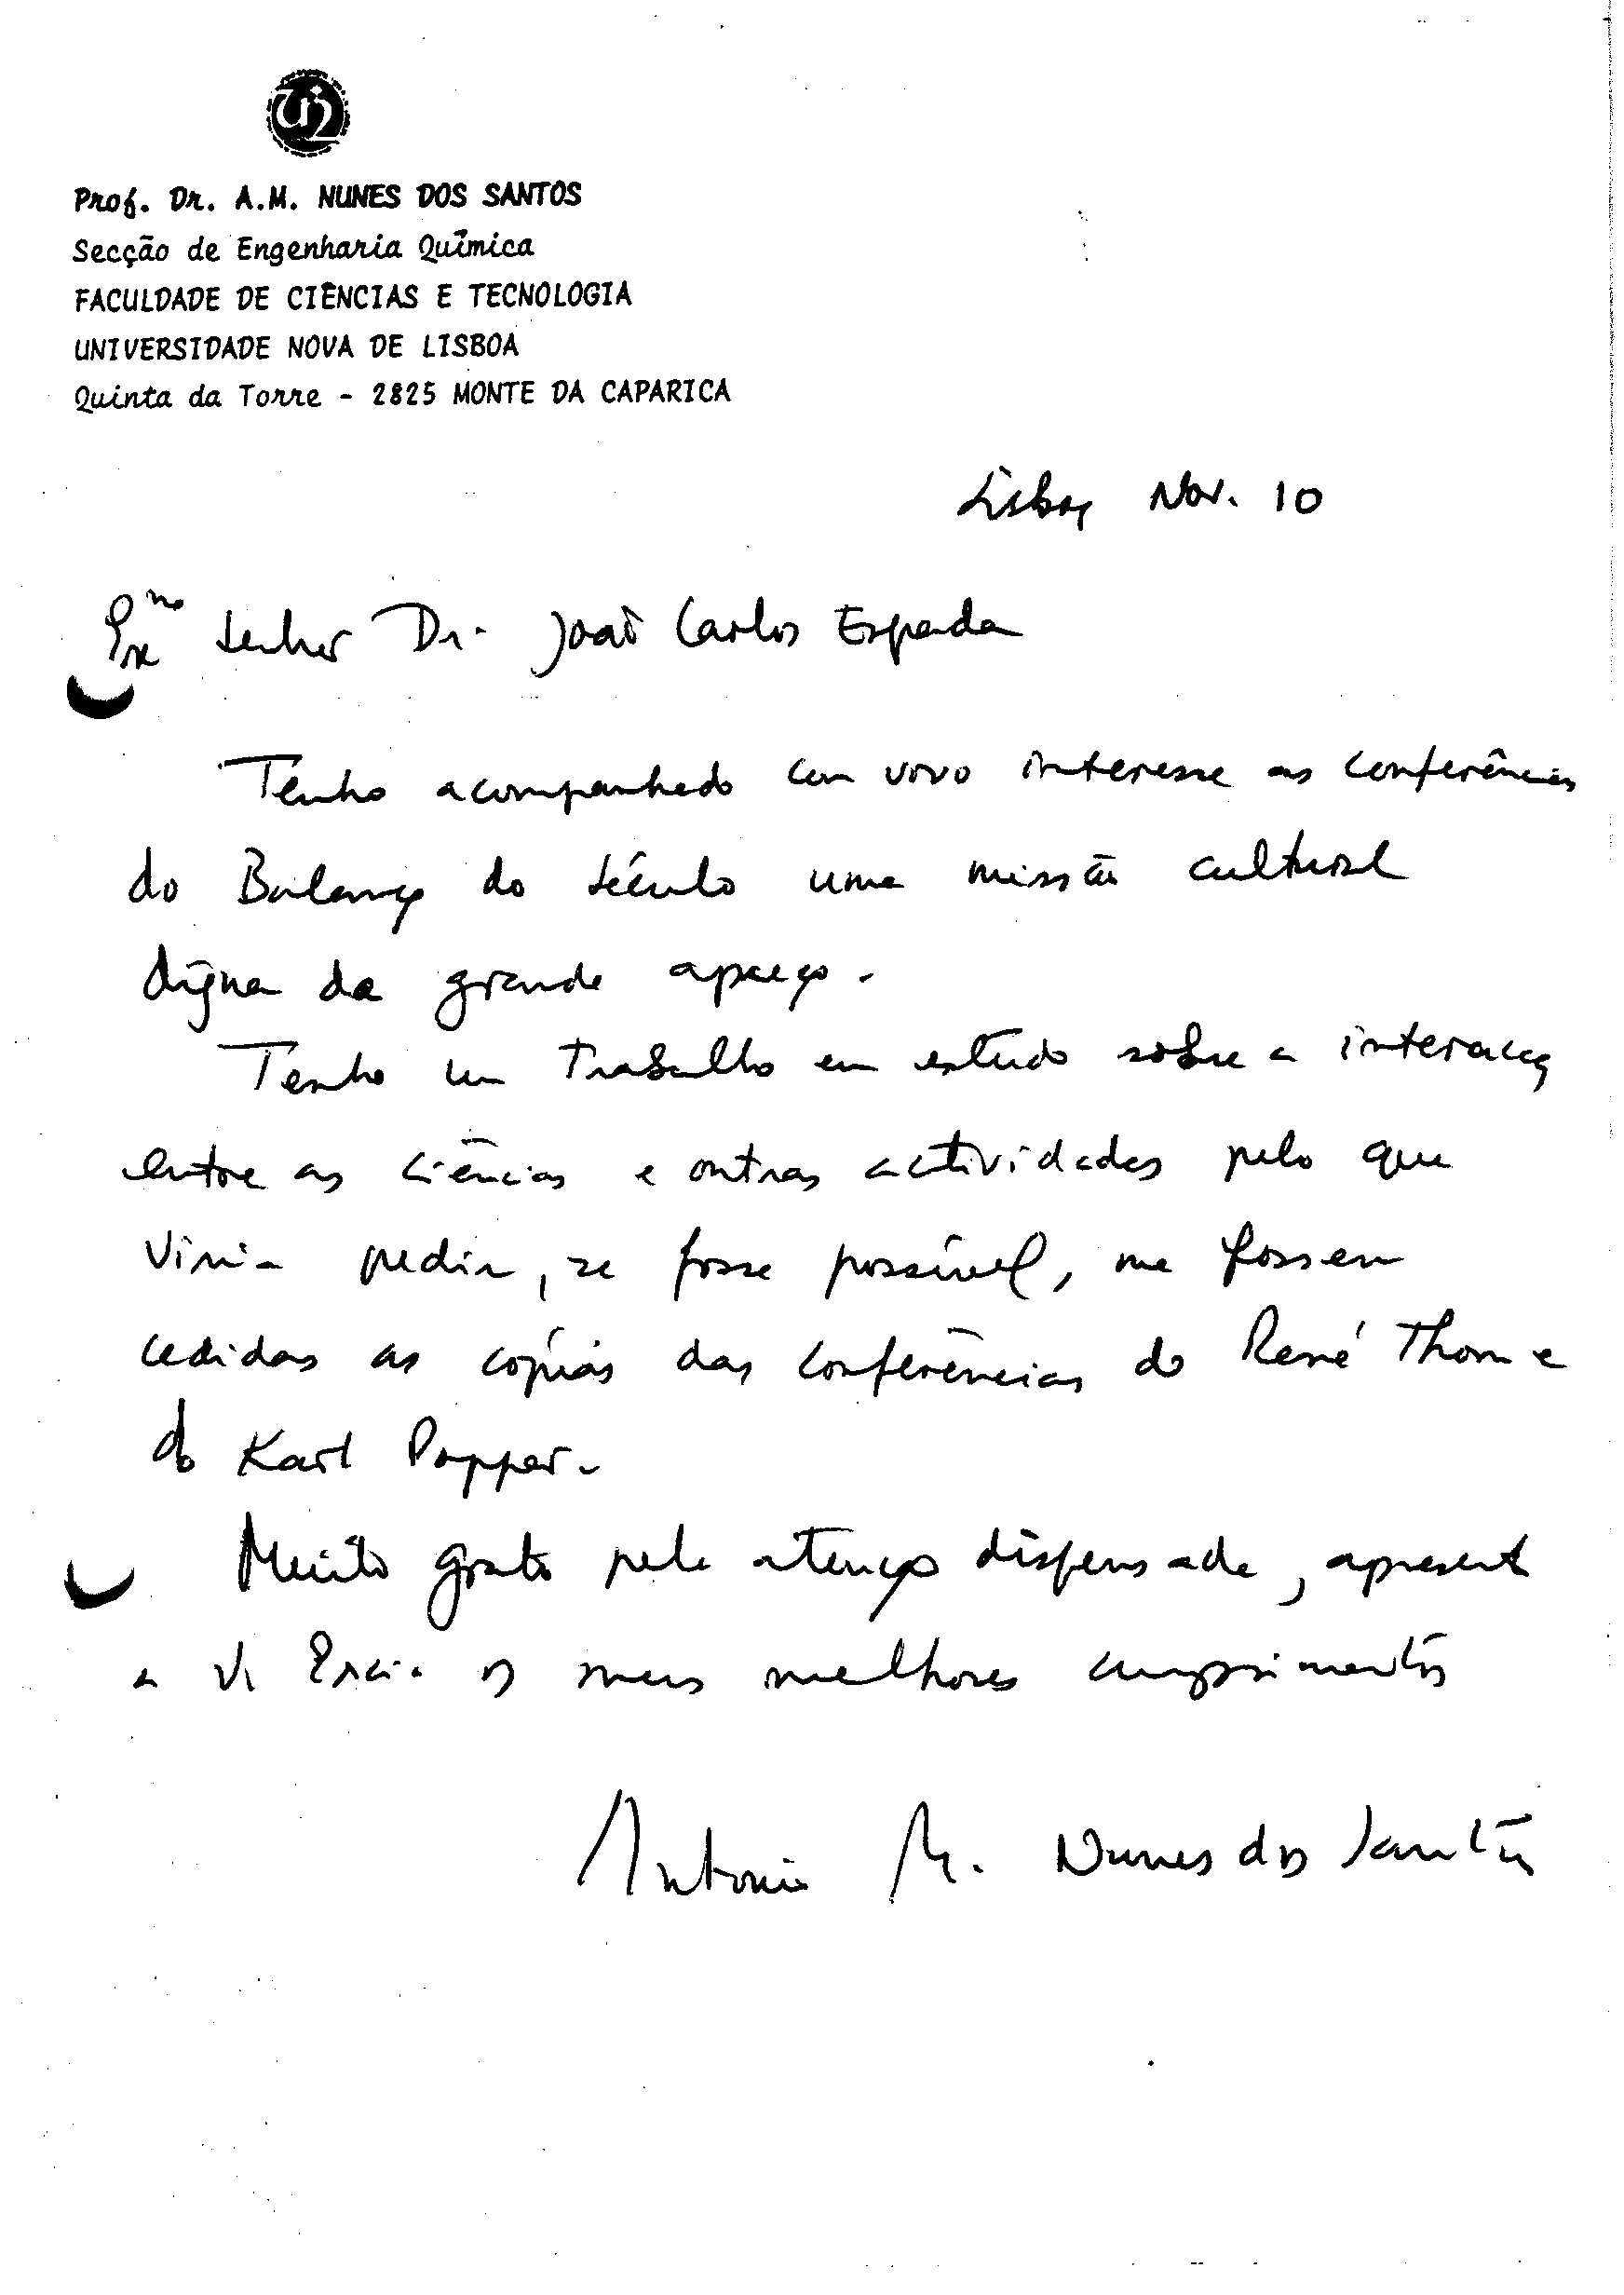 Prof. Dr. A.M. NUNES DOS SANTOS
Secção de Engenharia Química
FACULDADE DE CIÊNCIAS E TECNOLOGIA
UNIVERSIDADE NOVA DE LISBOA
Quinta da Torre - 2825 MONTE DA CAPARICA
Lisboa, Nov. 10
Exmo Senhor Dr. João Carlos Espada
Tenho acompanhado com vivo interesse as conferências
do Balanço do Século uma missão cultural
digna de grande apreço.
Tenho um trabalho em estudo sobre a interacção
entre as ciências e outras actividades pelo que
viria pedir, se fosse possível, me fossem
cedidas as cópias das conferências do René Thom e
do Karl Popper.
Muito grato pela atenção dispensada, apresento
a V. Excia. os meus melhores cumprimentos
Antonio M. Nunes dos Santos